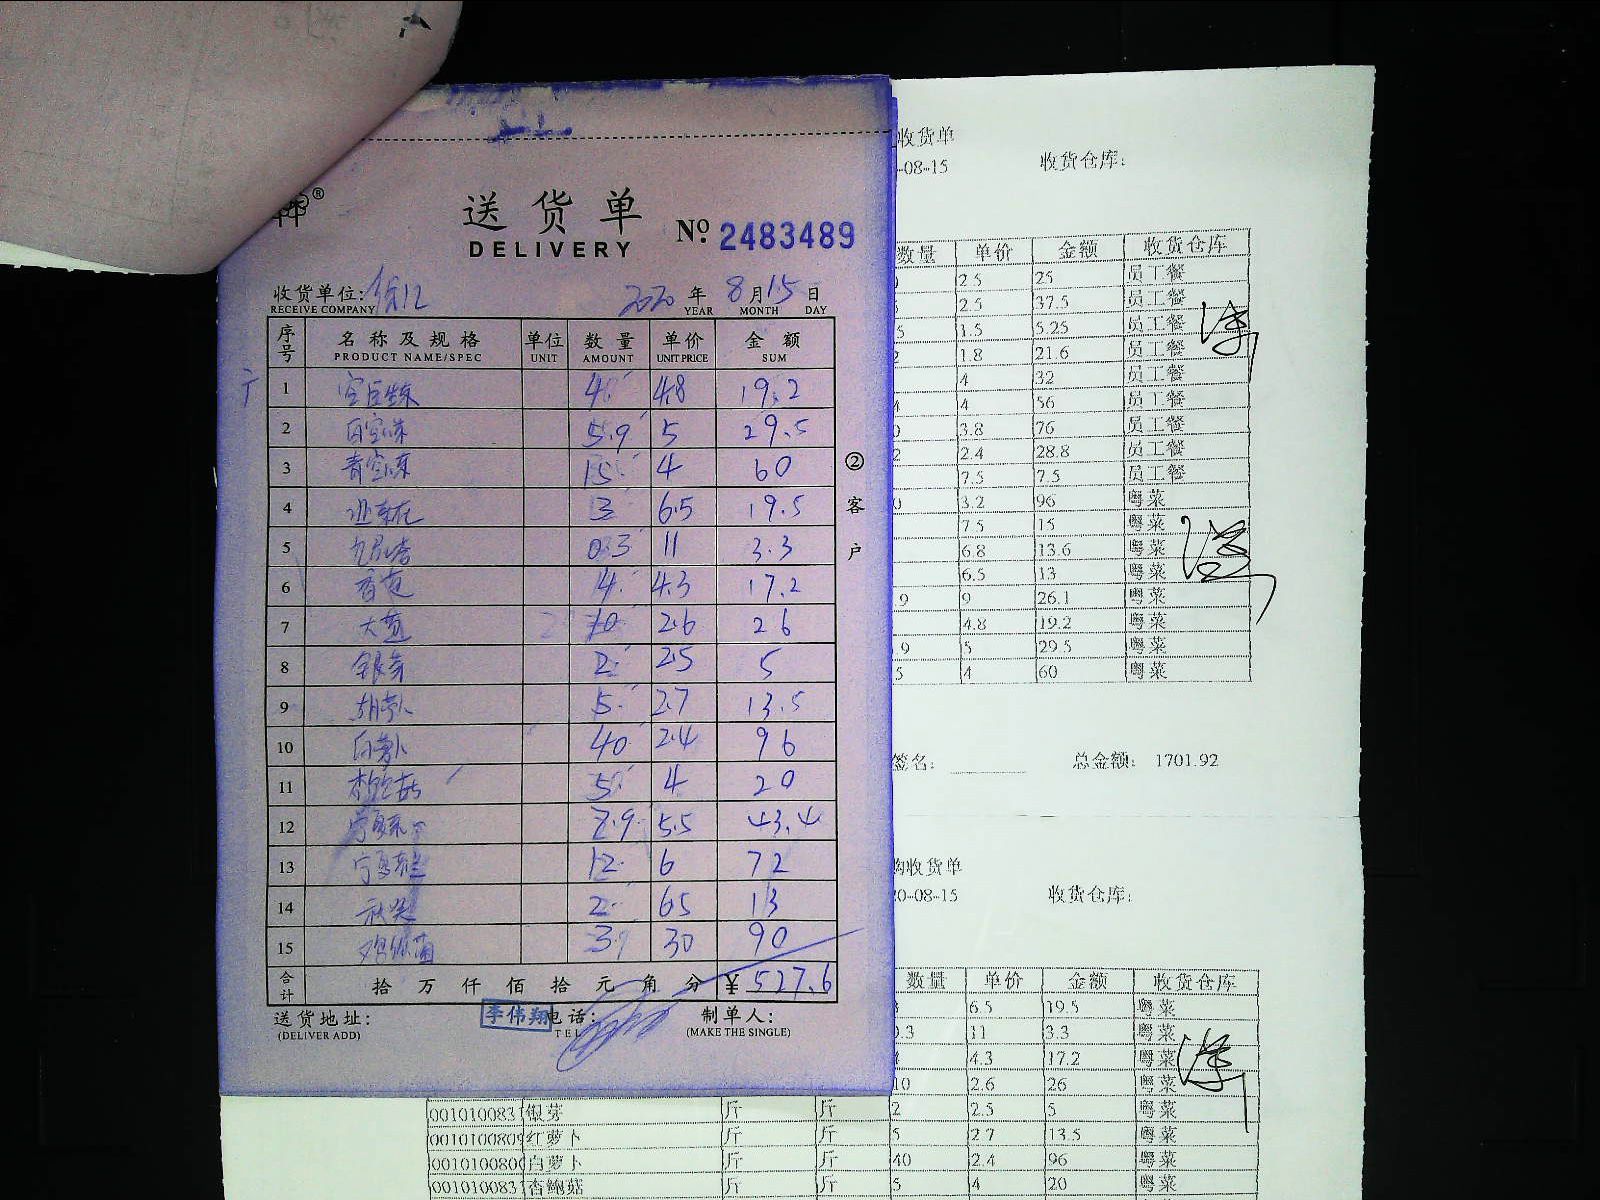 送货单
DELIVERY
№ 2483489
收货单位:
RECEIVE COMPANY
2020 年 8 月 15 日
YEAR MONTH DAY
序号 名称及规格 单位 数量 单价 金额
PRODUCT NAME/SPEC UNIT AMOUNT UNIT PRICE SUM
1 4 4.8 19.2
2 5.9 5 29.5
3 15 4 60
4 3 6.5 19.5
5 0.3 11 3.3
6 香 4 4.3 17.2
7 大 10 2.6 26
8 银芽 2 2.5 5
9 5 2.7 13.5
10 白萝卜 40 2.4 96
11 5 4 20
12 7.9 5.5 43.4
13 12 6 72
14 2 6.5 13
15 3 30 90
合计 拾 万 仟 佰 拾 元 角 分 ¥ 527.6
②客户
送货地址:
(DELIVER ADD)
李伟翔
电话:
TEL
制单人:
(MAKE THE SINGLE)
收货单
-08-15 收货仓库:
数量 单价 金额 收货仓库
2.5 25 员工餐
2.5 37.5 员工餐
5 1.5 5.25 员工餐
2 1.8 21.6 员工餐
4 32 员工餐
4 4 56 员工餐
0 3.8 76 员工餐
2 2.4 28.8 员工餐
7.5 7.5 员工餐
0 3.2 96 粤菜
7.5 15 粤菜
6.8 13.6 粤菜
6.5 13 粤菜
.9 9 26.1 粤菜
4.8 19.2 粤菜
.9 5 29.5 粤菜
5 4 60 粤菜
签名: 总金额: 1701.92
购收货单
0-08-15 收货仓库:
数量 单价 金额 收货仓库
3 6.5 19.5 粤菜
0.3 11 3.3 粤菜
4 4.3 17.2 粤菜
10 2.6 26 粤菜
001010083 银芽 斤 斤 2 2.5 5 粤菜
001010080 红萝卜 斤 斤 5 2.7 13.5 粤菜
001010080 白萝卜 斤 斤 40 2.4 96 粤菜
001010083 杏鲍菇 斤 斤 5 4 20 粤菜